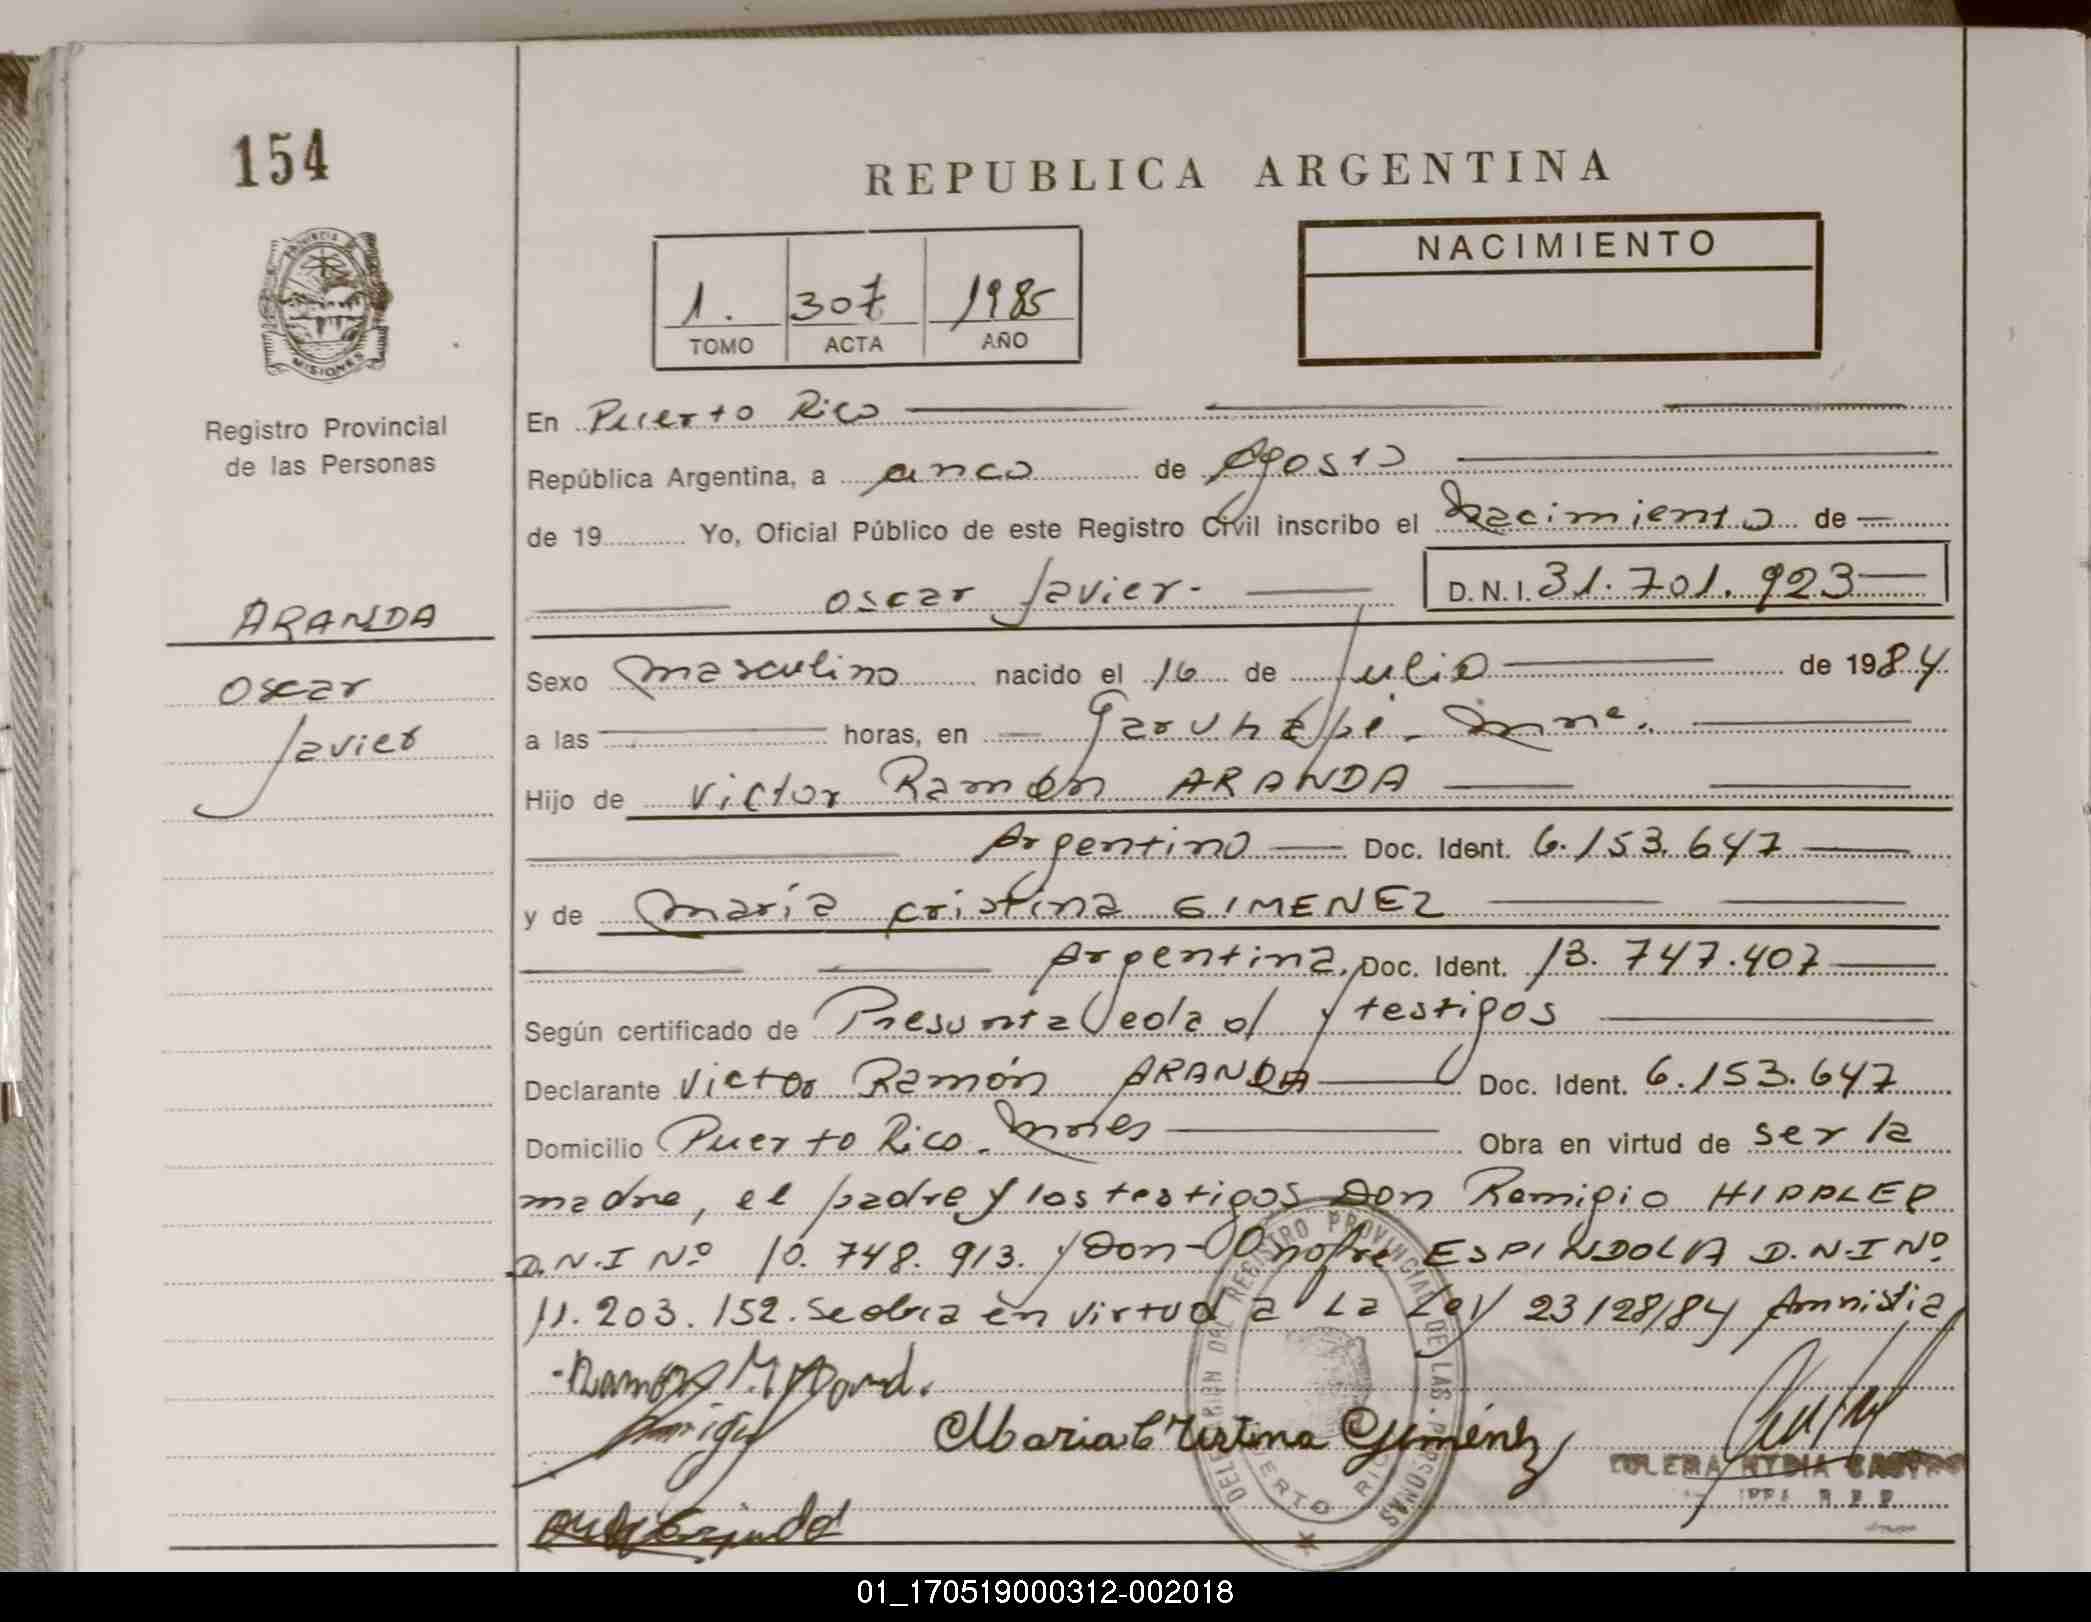 154
REPUBLICA ARGENTINA
NACIMIENTO
1. 307 1985
TOMO ACTA AÑO
PROVINCIA DE MISIONES
Registro Provincial
de las Personas
ARANDA
Oscar
Javier
En Puerto Rico
República Argentina, a cinco de Agosto
de 19 Yo, Oficial Público de este Registro Civil inscribo el Nacimiento de
Oscar Javier. D.N.I. 31.701.923
Sexo masculino nacido el 16 de Julio de 1984
a las horas, en Garuhapé. Mnes.
Hijo de Victor Ramón ARANDA
Argentino Doc. Ident. 6.153.647
y de María Cristina GIMENEZ
Argentina. Doc. Ident. 13.747.407
Según certificado de Presunta edad y testigos
Declarante Victor Ramón ARANDA Doc. Ident. 6.153.647
Domicilio Puerto Rico. Mnes Obra en virtud de ser la
madre, el padre y los testigos Don Remigio HIPPLER
D.N.I Nº 10.748.913. y Don Onofre ESPINDOLA D.N.I Nº
11.203.152. Se obra en virtud a La Ley 23128/84 Amnistia
Maria Cristina Giménez
DELEGACION DEL REGISTRO PROVINCIAL DE LAS PERSONAS
PUERTO RICO
NYDIA CASTRO
01_170519000312-002018